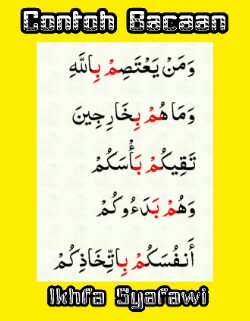 Contoh Bacaan
وَمَنْ يَعْتَصِمْ بِاللّٰهِ
وَمَا هُمْ بِخَارِجِينَ
تَقِيكُمْ بَأْسَكُمْ
وَهُمْ بَدَءُوكُمْ
أَنفُسَكُمْ بِاتِّخَاذِكُمْ
Ikhfa Syafawi